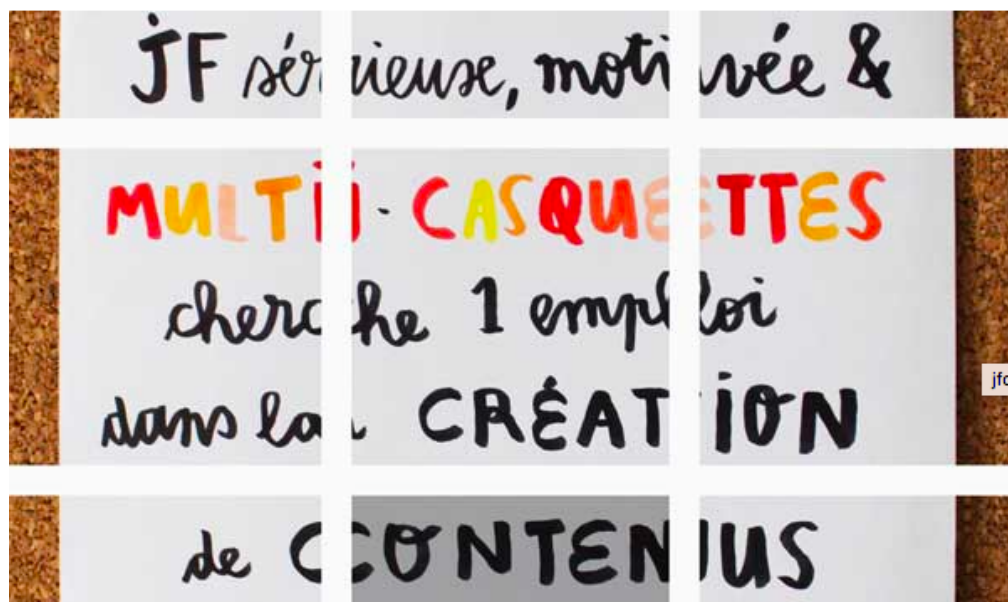 JF sérieuse, motivée &
MULTI-CASQUETTES
cherche 1 emploi
dans la CRÉATION
de CONTENUS